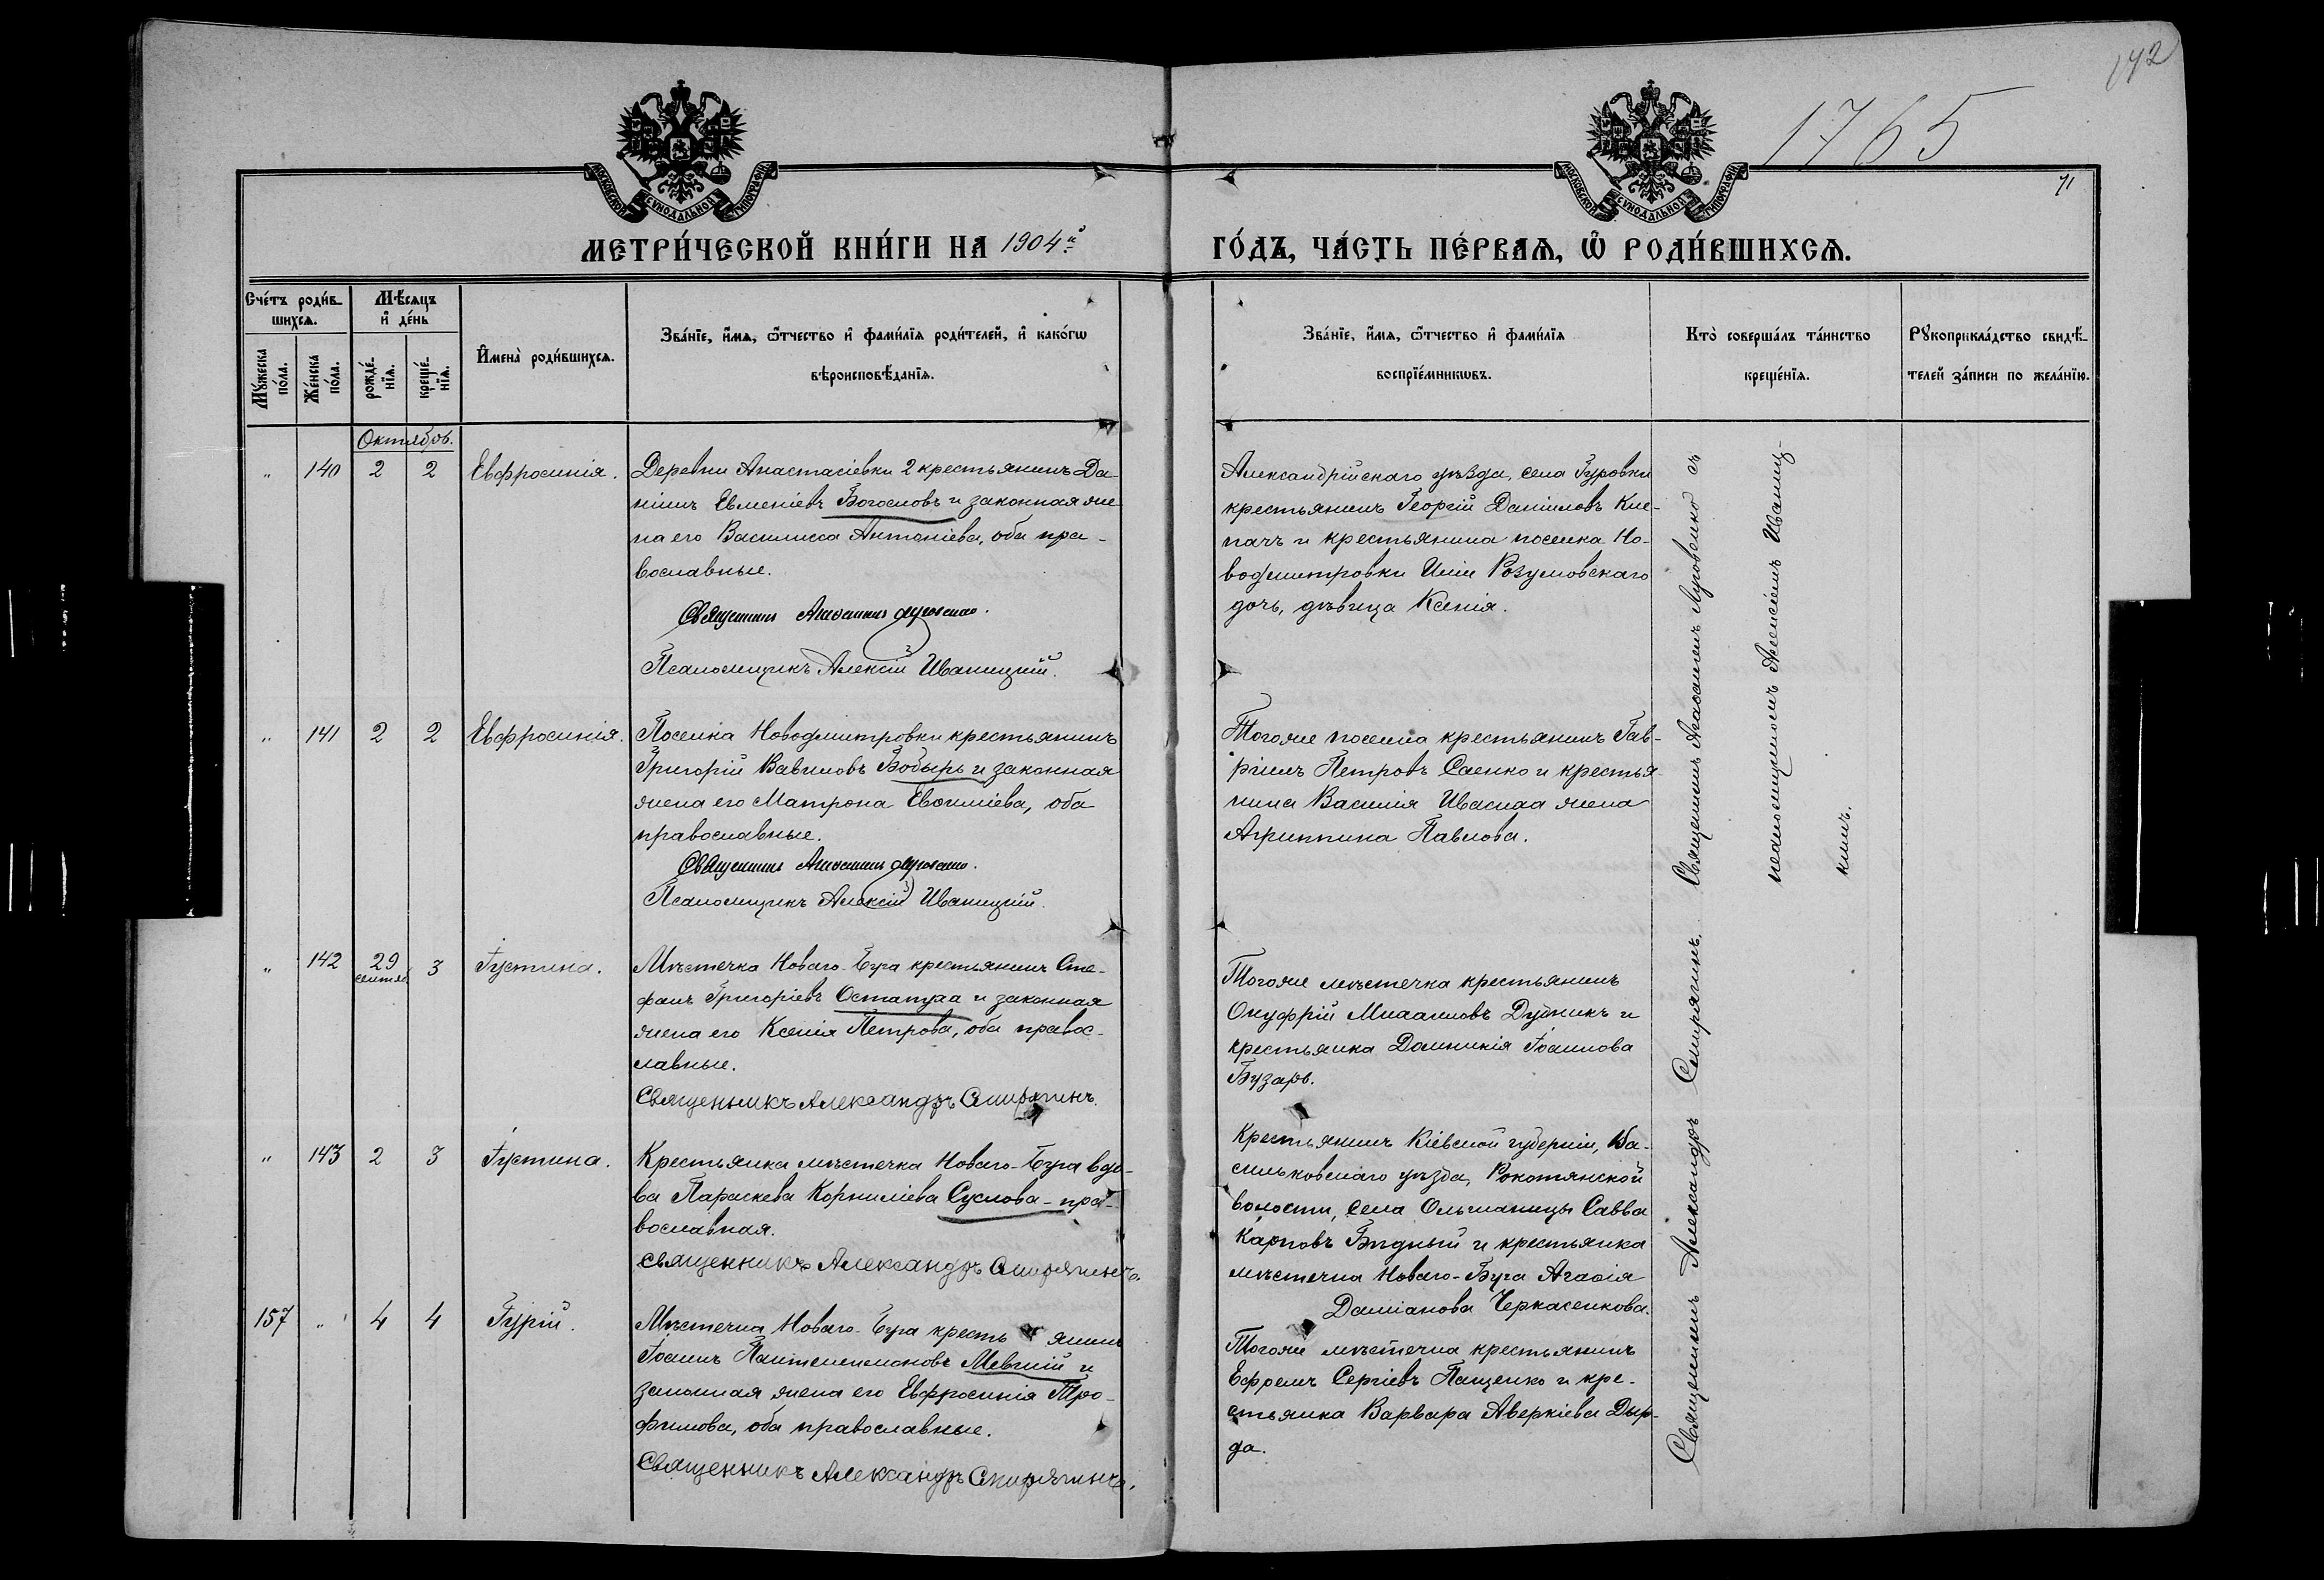 142
1765
71
МОСКОВСКОЙ СѴНОДАЛЬНОЙ ТИПОГРАФІИ
МОСКОВСКОЙ СѴНОДАЛЬНОЙ ТИПОГРАФІИ
МЕТРИ́ЧЕСКОЙ КНИ́ГИ НА 1904й
ГО́ДЪ, ЧА́СТЬ ПЕ́РВАѦ, Ѡ҆ РОДИ́ВШИХСѦ.
Сче́тъ роди́в-
шихсѧ.
Мꙋ́жеска по́ла.
Же́нска по́ла.
Мѣ́сѧцъ
и҆ де́нь
рожде́-нїѧ.
креще́-нїѧ.
И҆мена̀ роди́вшихсѧ.
Зва́нїе, и҆́мѧ, ѻ҆́тчество и҆ фами́лїѧ роди́телей, и҆ како́гѡ
вѣроисповѣ́данїѧ.
Зва́нїе, и҆́мѧ, ѻ҆́тчество и҆ фами́лїѧ
воспрїе́мникѡвъ.
Кто̀ соверша́лъ та́инство
креще́нїѧ.
Рꙋкоприкла́дство свидѣ́-
телей за́писи по жела́нїю.
Октябрь.
" 140 2 2 Евфросинія.
Деревни Анастасіевки 2 крестьянинъ Да-
ніилъ Евменіевъ Богословъ и законная же
на его Василисса Антоніева, оба пра-
вославные.
Священникъ Агаѳангелъ Луговенко.
Псаломщикъ Алексій Иваницкій.
Александрійскаго уѣзда, села Гуровки
крестьянинъ Георгій Даніиловъ Кле-
пачъ и крестьянина поселка Но-
водмитровки Иліи Розумовскаго
дочь, дѣвица Ксенія.
Священникъ Агаѳангелъ Луговенко съ
псаломщикомъ Алексіемъ Иваниц-
кимъ.
" 141 2 2 Евфросинія.
Поселка Новодмитровки крестьянинъ
Григорій Вавиловъ Бобырь и законная
жена его Матрона Евѳиміева, оба
православные.
Священникъ Агаѳангелъ Луговенко.
Псаломщикъ Алексій Иваницкій.
Тогоже поселка крестьянинъ Гав-
ріилъ Петровъ Саенко и крестья
нина Василія Иваснаа жена
Агриппина Павлова.
" 142 29 сентяб 3 Іустина.
Мѣстечка Новаго-Буга крестьянинъ Сте-
фанъ Григоріевъ Остапуха и законная
жена его Ксенія Петрова, оба правос-
лавные.
Священникъ Александръ Смирягинъ.
Тогоже мѣстечка крестьянинъ
Онуфрій Михаиловъ Дудникъ и
крестьянка Домникія Іоаннова
Бузарь.
" 143 2 3 Іустина.
Крестьянка мѣстечка Новаго-Буга вдо-
ва Параскева Корниліева Суслова - пра-
вославная.
Священникъ Александръ Смирягинъ.
Крестьянинъ Кіевской губерніи, Ва-
сильковскаго уѣзда, Рокотянской
волости, села Ольшаницы Савва
Карповъ Бѣдный и крестьянка
мѣстечка Новаго-Буга Агаѳія
Даміанова Черкасенкова.
157 " 4 4 Гурій.
Мѣстечка Новаго-Буга крестьянинъ
Іоаннъ Пантелеимоновъ Мевшій и
законная жена его Евфросинія Тро-
фимова, оба православные.
Священникъ Александръ Смирягинъ.
Тогоже мѣстечка крестьянинъ
Ефремъ Сергіевъ Пащенко и кре-
стьянка Варвара Аверкіева Дыр-
да.
Священникъ Александръ Смирягинъ.